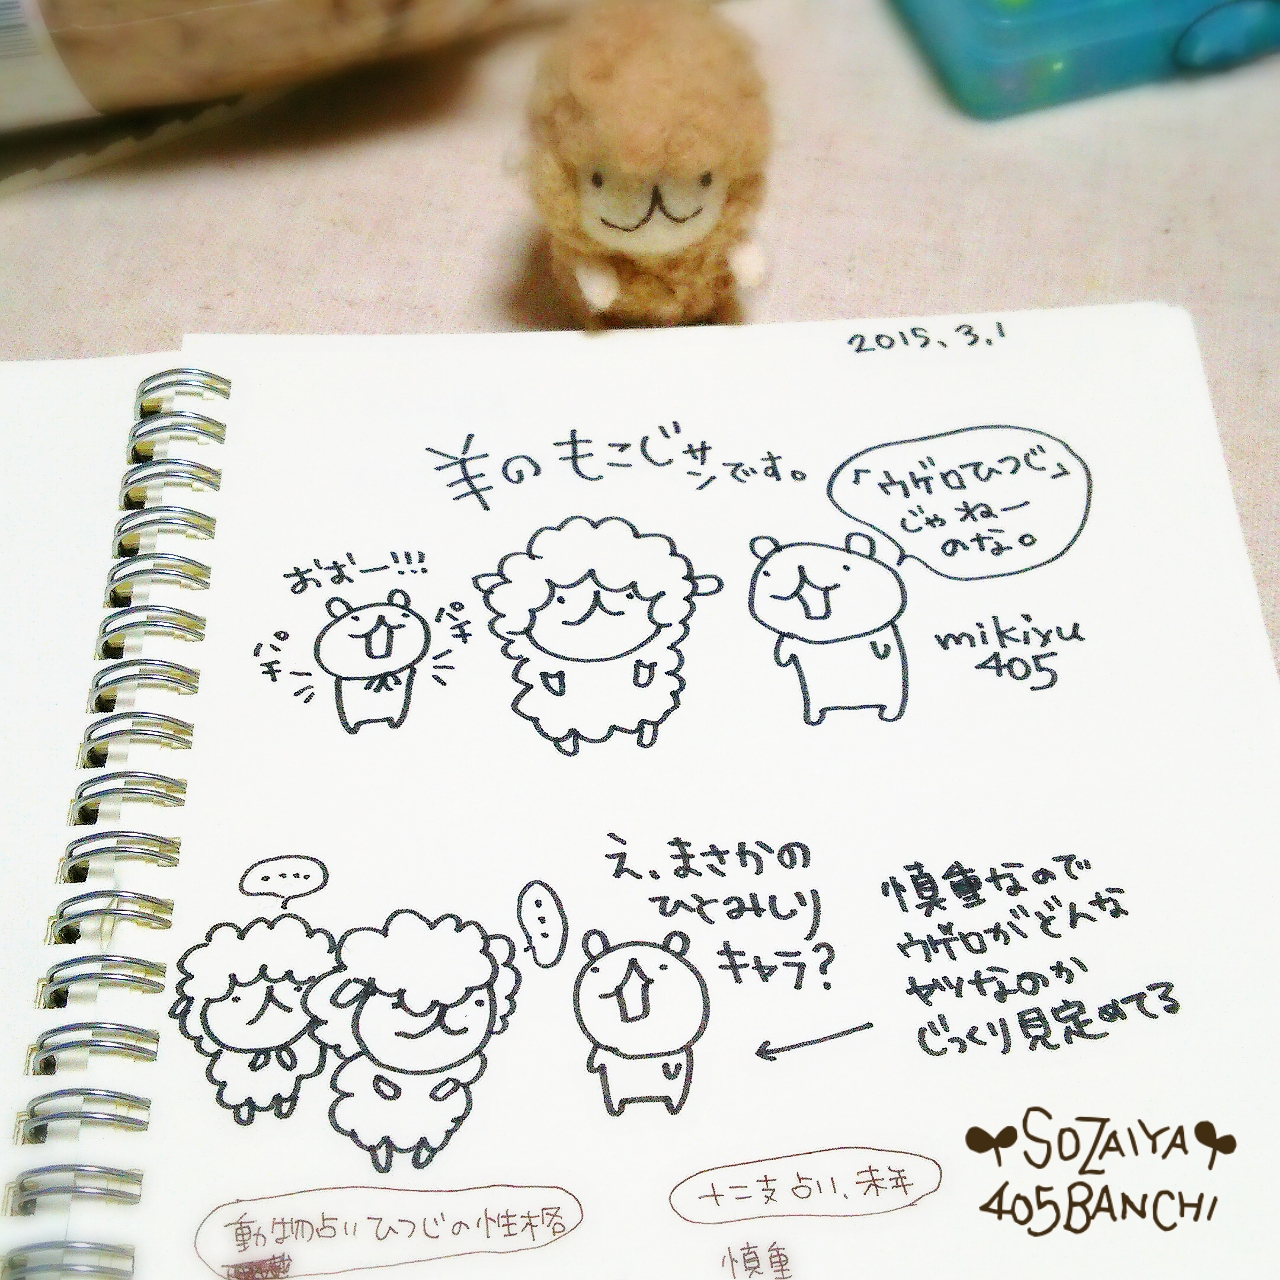 2015.3.1
羊のもこじサンです。
「ウゲロひつじ」
じゃねー
のな。
おおー!!!
パチ
パチ
mikiyu
405
・・・・
・・・
え、まさかの
ひとみしり
キャラ?
慎重なので
ウゲロがどんな
ヤツなのか
じっくり見定めてる
SOZAIYA
405BANCHI
十二支占い、未年
動物占いひつじの性格
慎重